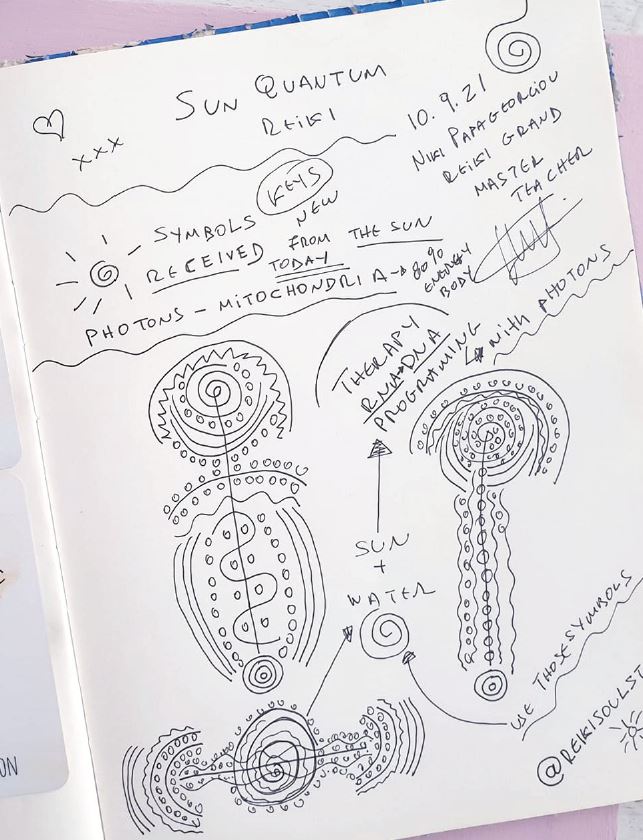 SUN QUANTUM
REIKI
xxx
10.9.21
NIKI PAPAGEORGIOU
REIKI GRAND
MASTER
TEACHER
SYMBOLS KEYS
NEW
RECEIVED FROM THE SUN
TODAY
PHOTONS - MITOCHONDRIA → 80%
ENERGY
BODY
THERAPY
RNA→DNA
PROGRAMING
WITH PHOTONS
SUN
+
WATER
USE THOSE SYMBOLS
@REIKISOULST
ON